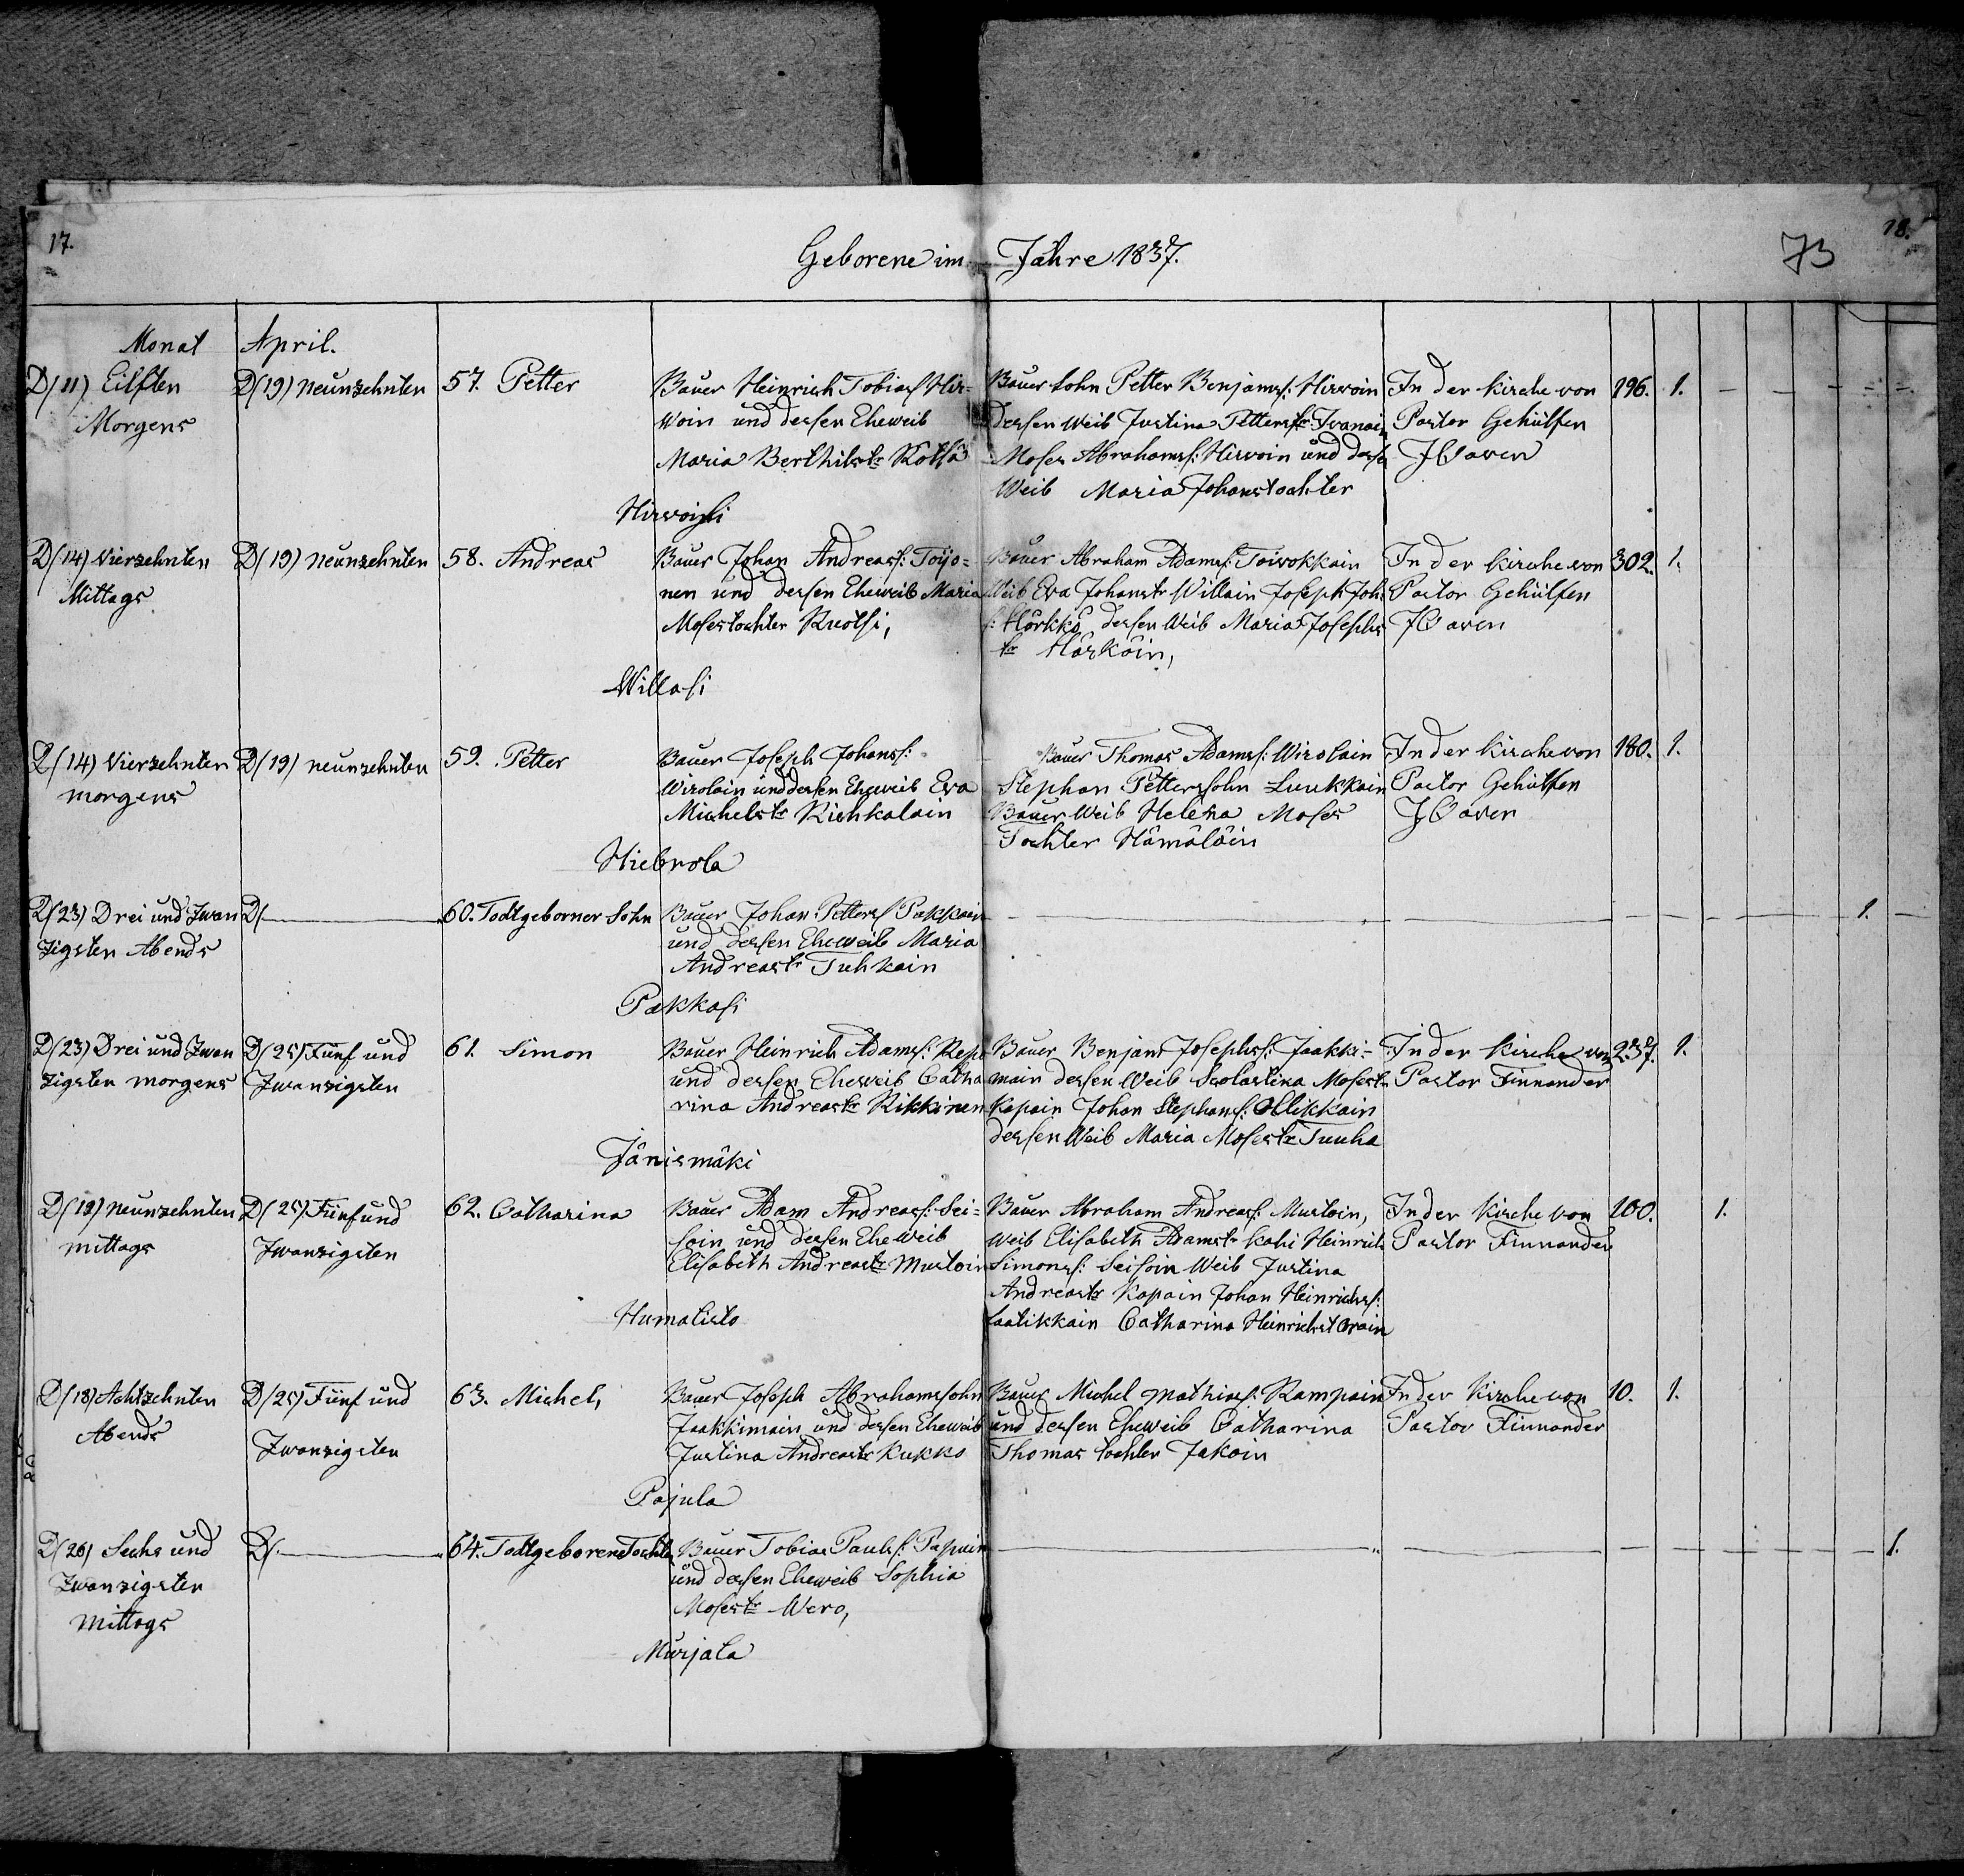 17.
Geborene im Jahre 1837.
73
18.
Monat April.
D/11) Eilften
Morgens
D/19) neunzehnten
57. Petter
Bauer Heinrich Tobiasſ Hir-
woin und deſsen Eheweib
Maria Berthilstr
Hirwoiſi
Bauer Sohn Petter Benjamſ: Hirwoin
deſsen Weib Justina Petterstr Ivanain
Moſes Abrahamſ: Hirwoin und deſsen
Weib Maria Johanstochter
In der Kirche von
Pastor Gehülfen
196. 1.
D/14) Vierzehnten
Mittags
D/19) neunzehnten
58. Andreas
Bauer Johan Andreasſ: Toijo-
nen und deſsen Eheweib Maria
Moſestochter Ruotsi,
Willaſi
Bauer Abraham Adamſ: Toiwokkain
Weib Eva Johanstr Willain Joſeph Joh:
ſ: Hörkkö deſsen Weib Maria Joſephs
tr Hörköin,
In der Kirche von
Pastor Gehülfen
302. 1.
D/14) Vierzehnten
morgens
D/19) neunzehnten
59. Petter
Bauer Joſeph Johansſ:
Wirolain und deſsen Eheweib Eva
Michelstr
Bauer Thomas Adamsſ: Wirolain
Stephan Petterssohn Luukkain
Bauer Weib Helena Moſes
Tochter Hämäläin
In der Kirche von
Pastor Gehülfen
180. 1.
D/23) Drei und Zwan
zigsten Abends
D/
60. Todtgeborner Sohn
Bauer Johan Pettersſ Pakkain
und deſsen Eheweib Maria
Andreastr Tuhkain
Pakkaſi
1.
D/23) Drei und Zwan
zigsten morgens
D/25) Fünf und
Zwanzigsten
61. Simon
Bauer Heinrich Adamsſ: Repo
und deſsen Eheweib Catha
rina Andreastr Rikkinen
Jänismäki
Bauer Benjam Joſephsſ: Jaakki-
main deſsen Weib Scolastina Moſestr
Kapain Johan Stephansſ: Ollikkain
deſsen Weib Maria Moſestr Tuuha
In der Kirche von
Pastor Finnander
237. 1.
D/19) neunzehnten
mittags
D/25) Fünf und
Zwanzigsten
62. Catharina
Bauer Adam Andreasſ: Sei-
ſoin und deſsen Eheweib
Eliſabeth Andreastr Mustoin
Humalisto
Bauer Abraham Andreasſ: Mustoin,
Weib Eliſabeth Adamstr Kahi Heinrich
Simonsſ: Seiſoin Weib Justina
Andreastr Kapain Johan Heinrichsſ:
Laatikkain Catharina Heinrichst Orain
In der Kirche von
Pastor Finnander
100. 1.
D/18) Achtzehnten
Abends
D/25) Fünf und
Zwanzigsten
63. Michel,
Bauer Joſeph Abrahamssohn
Jaakkimain und deſsen Eheweib
Justina Andreastr Kukko
Pajula
Bauer Michel Mathiasſ: Rampain
und deſsen Eheweib Catharina
Thomas tochter Jakoin
In der Kirche von
Pastor Finnander
10. 1.
D/26) Sechs und
Zwanzigsten
Mittags
D/
64. Todtgeborene Tochter
Bauer Tobias Paulsſ: Papuin
und deſsen Eheweib Sophia
Moſestr Wero,
Murjala
1.